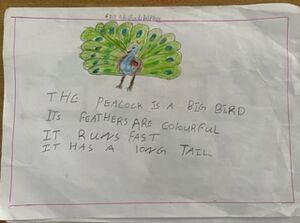 THE PEACOCK IS A BIG BIRD
ITS FEATHERS ARE COLOURFUL
IT RUNS FAST
IT HAS A lONG TAIL